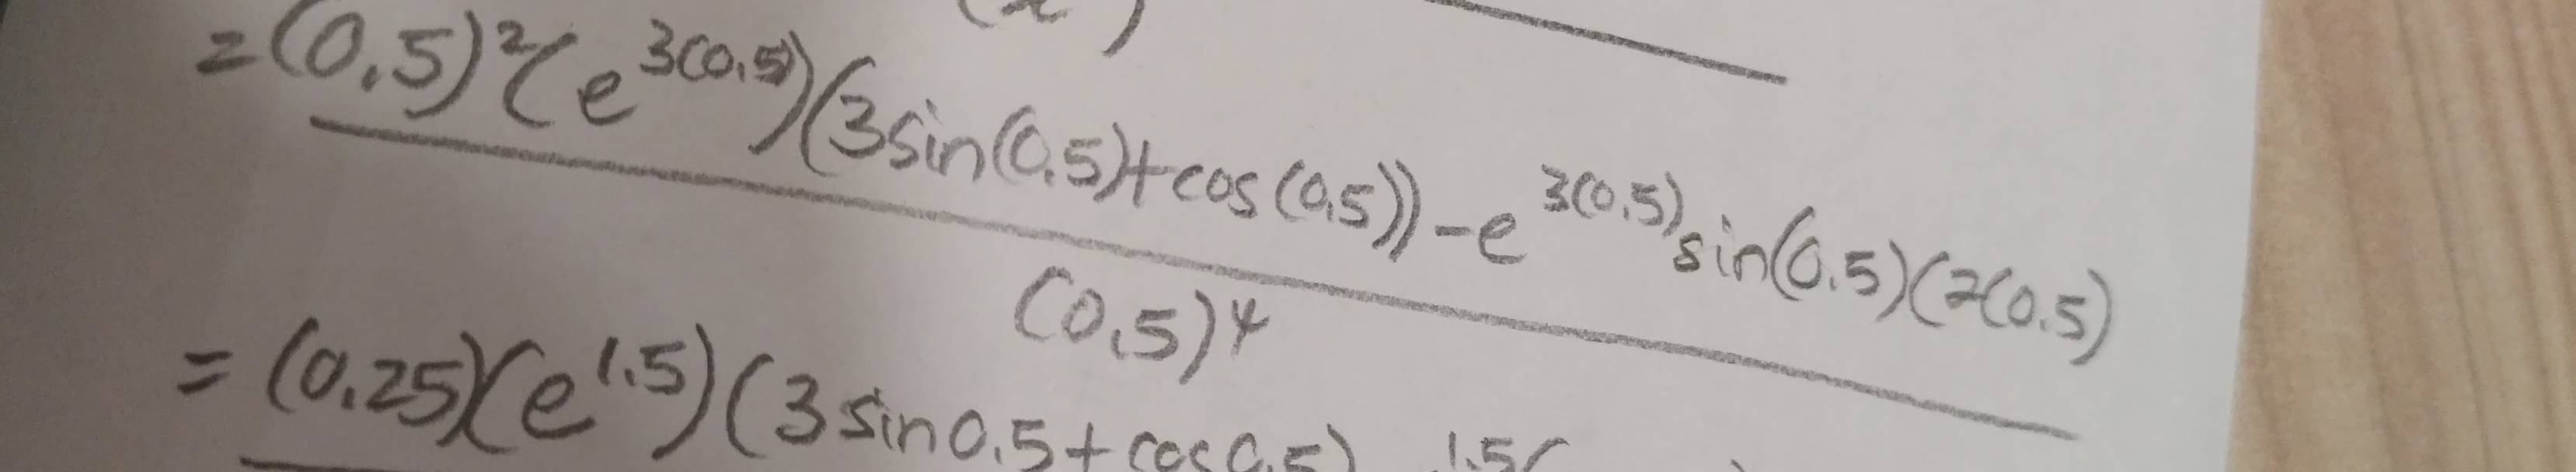 =(0.5)²(e^3(0.5))(3sin(0.5)+cos(0.5))-e^3(0.5)sin(0.5)(2(0.5)
(0.5)⁴
=(0.25)(e^1.5)(3sin0.5+cos0.5) 1.5(